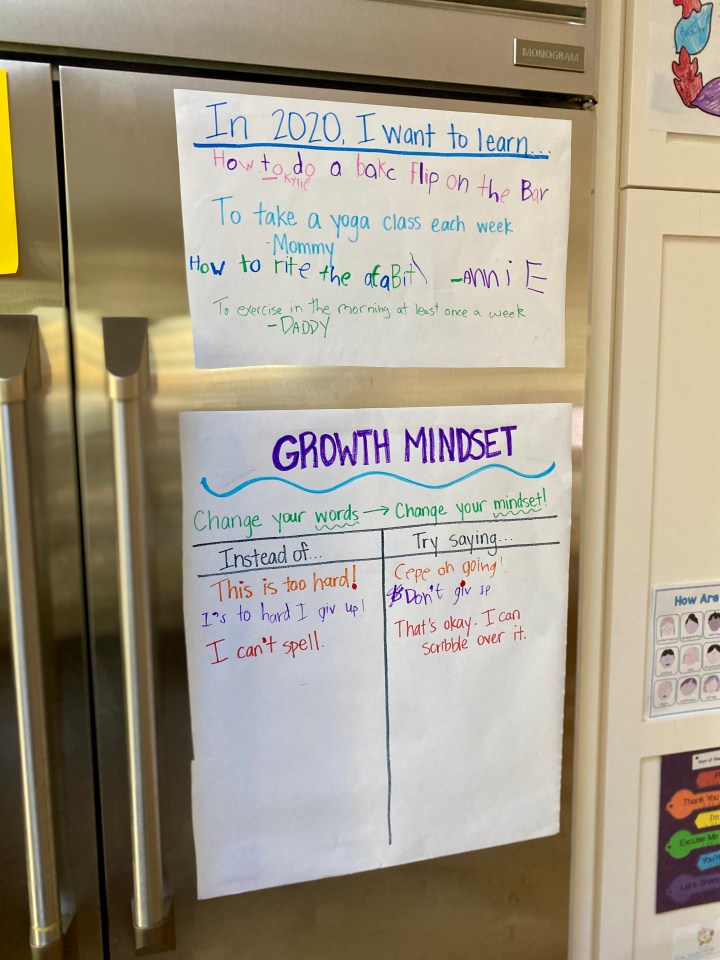 MONOGRAM
In 2020, I want to learn...
How to do a bakc flip on the Bar
-Kylie
To take a yoga class each week
-Mommy
How to rite the afaBit -AnniE
To exercise in the morning at least once a week
-DADDY
GROWTH MINDSET
Change your words → Change your mindset!
Instead of...
Try saying...
This is too hard!
Cepe oh going!
I's to hard I giv up!
Don't giv up
I can't spell.
That's okay. I can
scribble over it.
How Are
Thank You
I'm
Excuse Me
You're